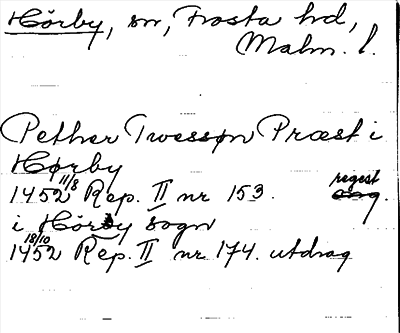 Hörby, sn, Frosta hd,
Malm. l.
Pether Twessøn Præst i
Hørby
1452 11/8 Rep. II nr 153. regest
i Hörby sogn
1452 18/10 Rep. II nr 174. utdrag